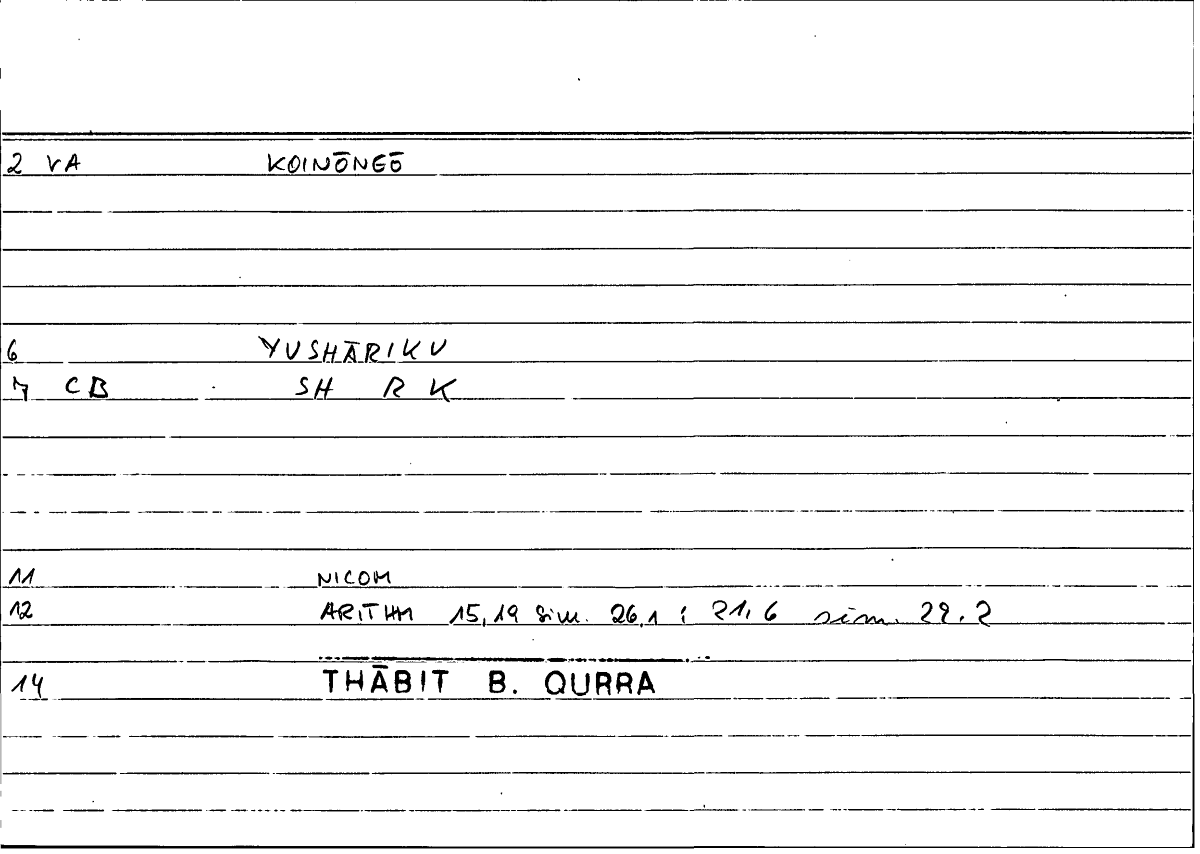 2 VA KOINŌNEŌ
6 YUSHĀRIKU
7 CB SH R K
11 NICOM
12 ARITHM 15,19 sim. 26,1 ; 21,6 sim. 29,2
14 THĀBIT B. QURRA